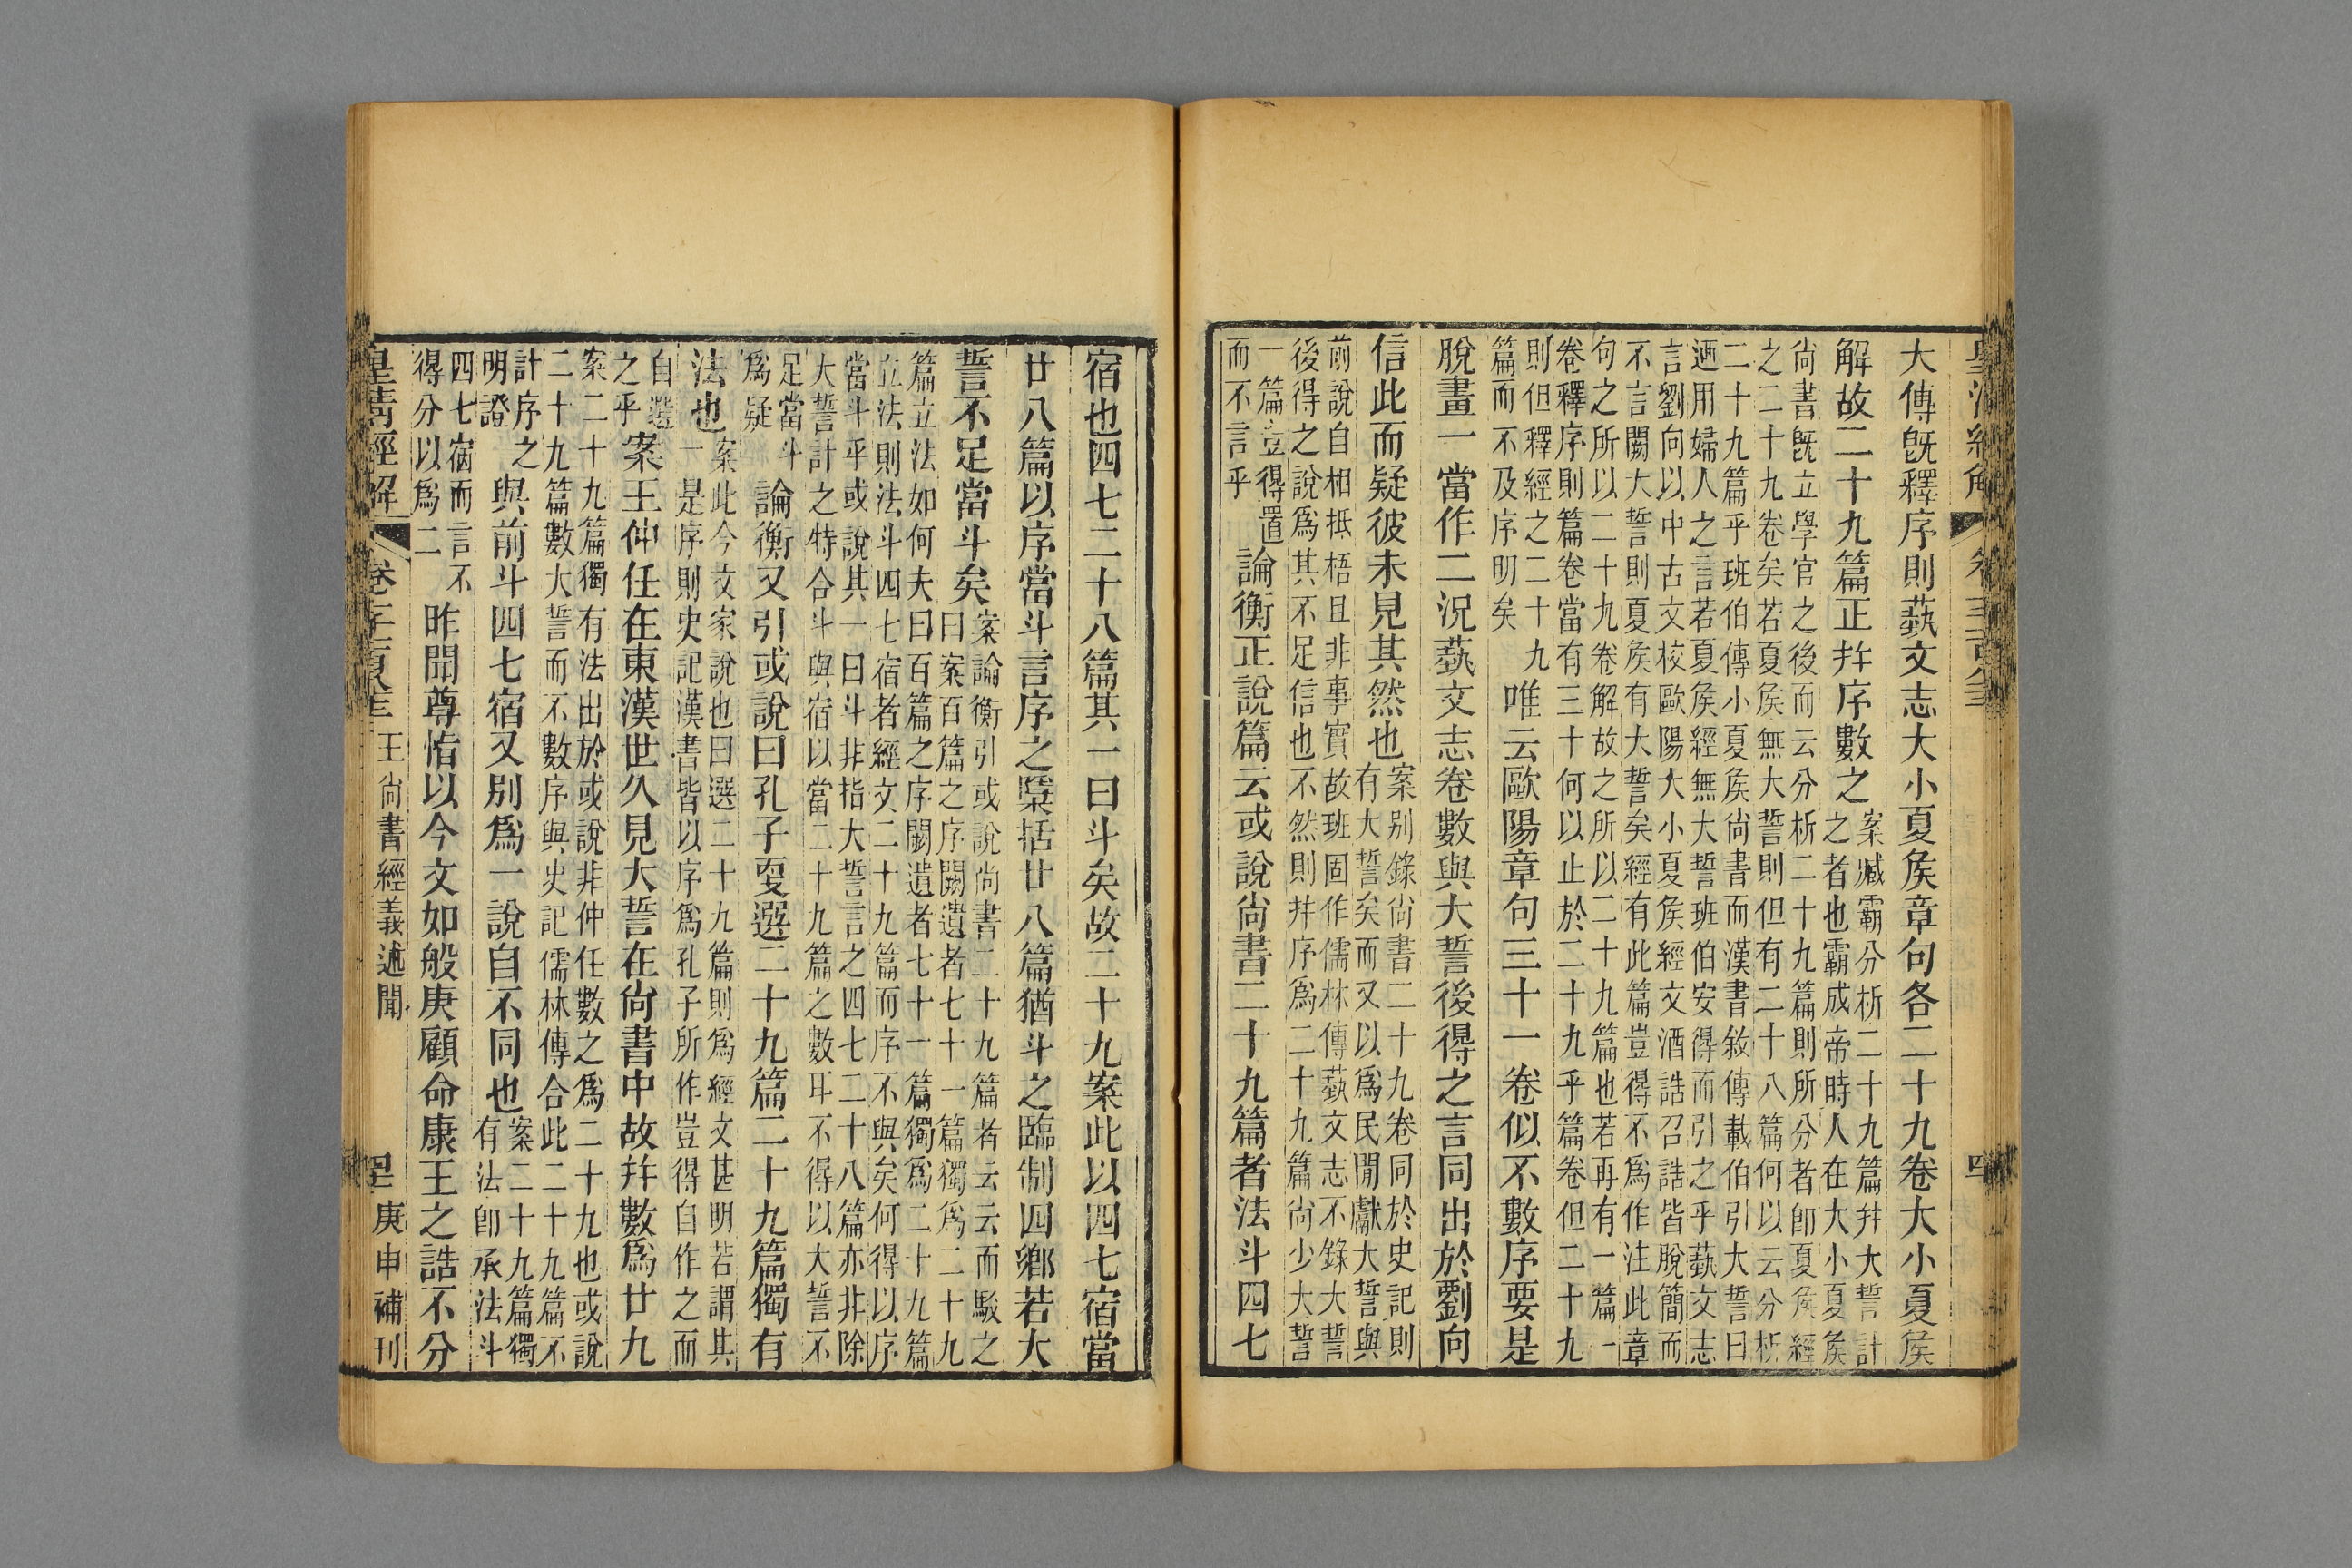 大傳旣釋序則蓺文志大小夏矦章句各二十九卷大小夏矦
解故二十九篇正幷序數之
案臧霸分析二十九篇幷大誓計
之者也霸成帝時人在大小夏矦
尚書旣立學官之後而云分析二十九篇則所分者卽夏矦經
之二十九卷矣若夏矦無大誓則但有二十八篇何以云分析
二十九篇乎班伯傳小夏矦尚書而漢書敘傳載伯引大誓曰
迺用婦人之言若夏矦經無大誓班伯安得而引之乎蓺文志
言劉向以中古文校歐陽大小夏矦經文酒誥召誥皆脫簡而
不言闕大誓則夏矦有大誓矣經有此篇豈得不爲作注此章
句之所以二十九卷解故之所以二十九篇也若再有一篇一
卷釋序則篇卷當有三十何以止於二十九乎篇卷但二十九
則但釋經之二十九
篇而不及序明矣
唯云歐陽章句三十一卷似不數序要是
脫畫一當作二況蓺文志卷數與大誓後得之言同出於劉向
信此而疑彼未見其然也
案别錄尚書二十九卷同於史記則
有大誓矣而又以爲民閒獻大誓與
前說自相抵梧且非事實故班固作儒林傳蓺文志不錄大誓
後得之說爲其不足信也不然則幷序爲二十九篇尚少大誓
一篇豈得置
而不言乎
論衡正說篇云或說尚書二十九篇者法斗四七
宿也四七二十八篇其一曰斗矣故二十九案此以四七宿當
廿八篇以序當斗言序之檃括廿八篇猶斗之臨制四鄉若大
誓不足當斗矣
案論衡引或說尚書二十九篇者云云而駮之
曰案百篇之序闕遺者七十一篇獨爲二十九
篇立法如何夫曰百篇之序闕遺者七十一篇獨爲二十九篇
立法則法斗四七宿者經文二十九篇而序不與矣何得以序
當斗乎或說其一曰斗非指大誓言之四七二十八篇亦非除
大誓計之特合斗與宿以當二十九篇之數耳不得以大誓不
足當斗
爲疑
論衡又引或說曰孔子更選二十九篇二十九篇獨有
法也
案此今文家說也曰選二十九篇則爲經文甚明若謂其
一是序則史記漢書皆以序爲孔子所作豈得自作之而
自選
之乎
案王仲任在東漢世久見大誓在尚書中故幷數爲廿九
案二十九篇獨有法出於或說非仲任數之爲二十九也或說
二十九篇數大誓而不數序與史記儒林傳合此二十九篇不
計序之
明證
與前斗四七宿又别爲一說自不同也
案二十九篇獨
有法卽承法斗
四七宿而言不
得分以爲二
昨聞尊恉以今文如般庚顧命康王之誥不分
皇淸經解
王尚書經義述聞
庚申補刊